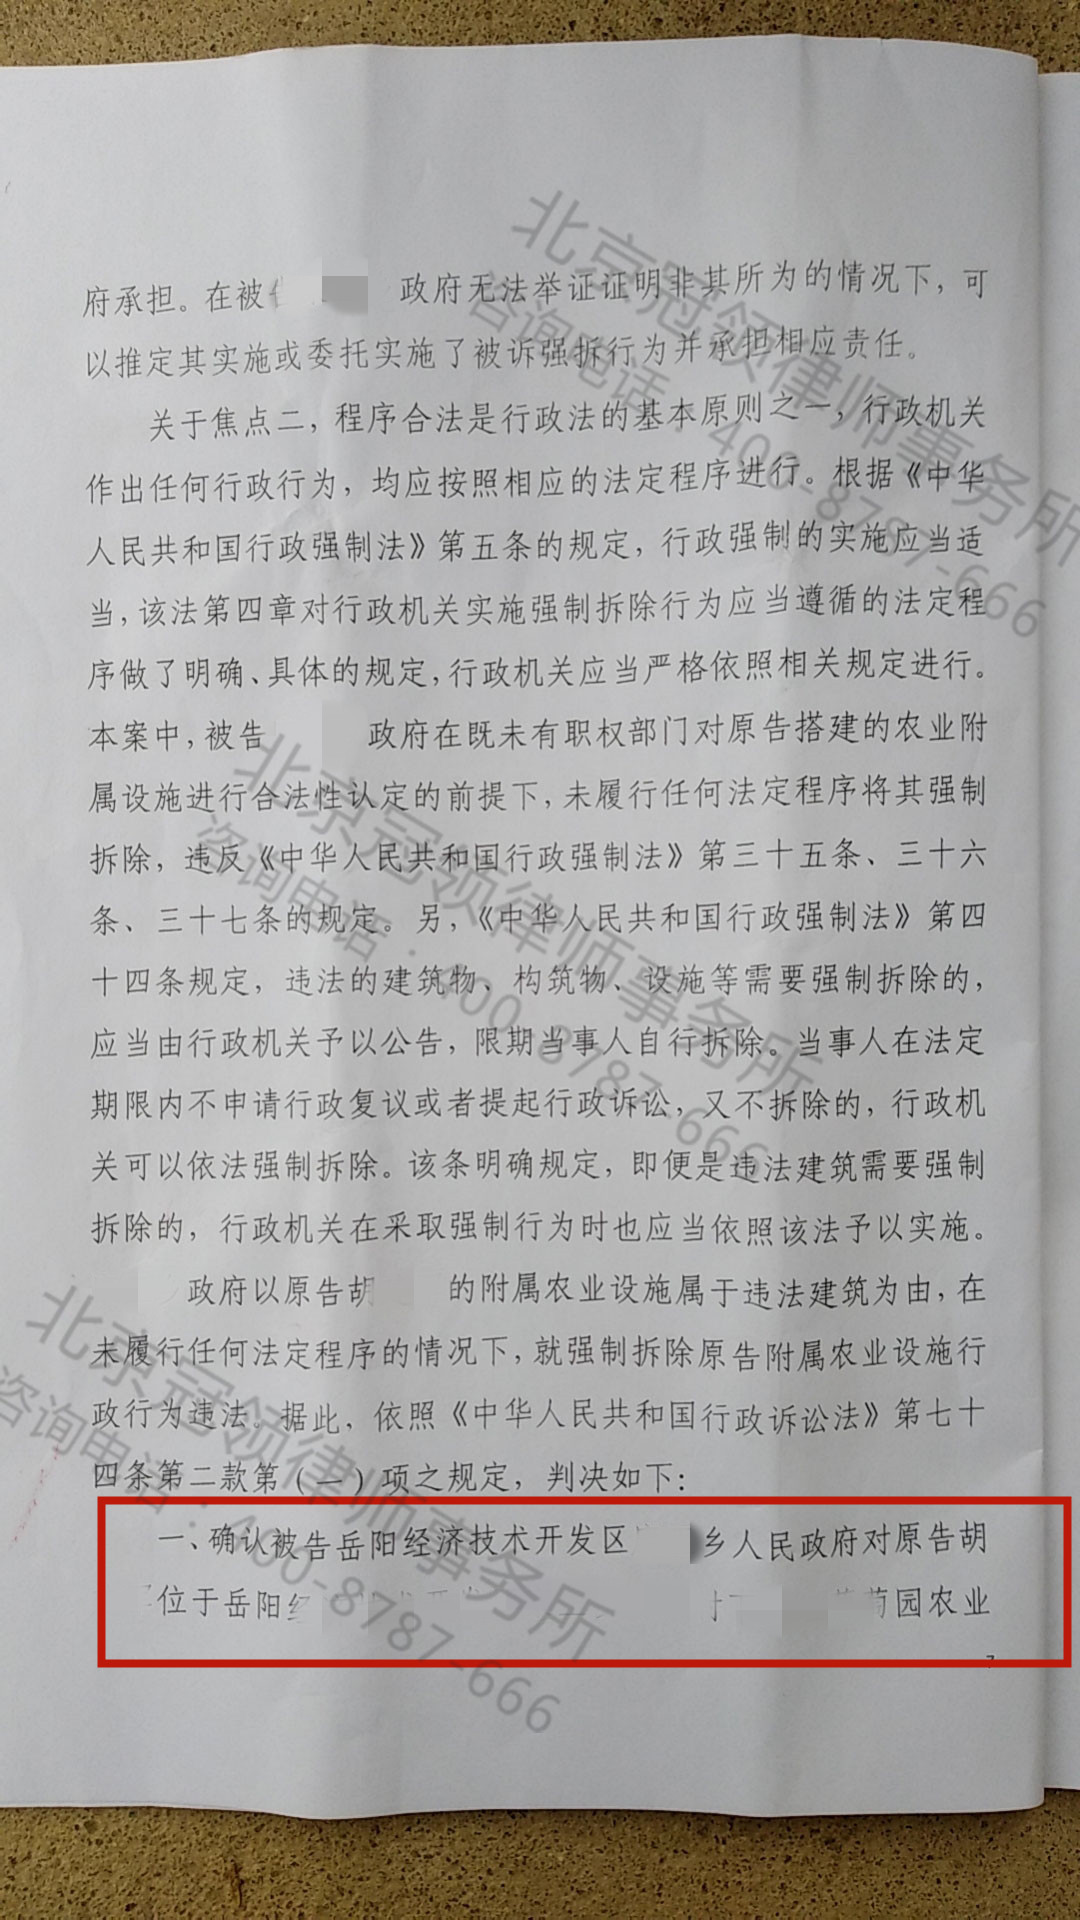 府承担。在被 政府无法举证证明非其所为的情况下，可
以推定其实施或委托实施了被诉强拆行为并承担相应责任。
关于焦点二，程序合法是行政法的基本原则之一，行政机关
作出任何行政行为，均应按照相应的法定程序进行。根据《中华
人民共和国行政强制法》第五条的规定，行政强制的实施应当适
当，该法第四章对行政机关实施强制拆除行为应当遵循的法定程
序做了明确、具体的规定，行政机关应当严格依照相关规定进行。
本案中，被告 政府在既未有职权部门对原告搭建的农业附
属设施进行合法性认定的前提下，未履行任何法定程序将其强制
拆除，违反《中华人民共和国行政强制法》第三十五条、三十六
条、三十七条的规定。另，《中华人民共和国行政强制法》第四
十四条规定，违法的建筑物、构筑物、设施等需要强制拆除的，
应当由行政机关予以公告，限期当事人自行拆除。当事人在法定
期限内不申请行政复议或者提起行政诉讼，又不拆除的，行政机
关可以依法强制拆除。该条明确规定，即便是违法建筑需要强制
拆除的，行政机关在采取强制行为时也应当依照该法予以实施。
政府以原告胡 的附属农业设施属于违法建筑为由，在
未履行任何法定程序的情况下，就强制拆除原告附属农业设施行
政行为违法。据此，依照《中华人民共和国行政诉讼法》第七十
四条第二款第（一）项之规定，判决如下：
一、确认被告岳阳经济技术开发区 乡人民政府对原告胡
位于岳阳经 园农业
7
北京冠领律师事务所
咨询电话：400-8787-666
北京冠领律师事务所
咨询电话：400-8787-666
北京冠领律师事务所
咨询电话：400-8787-666